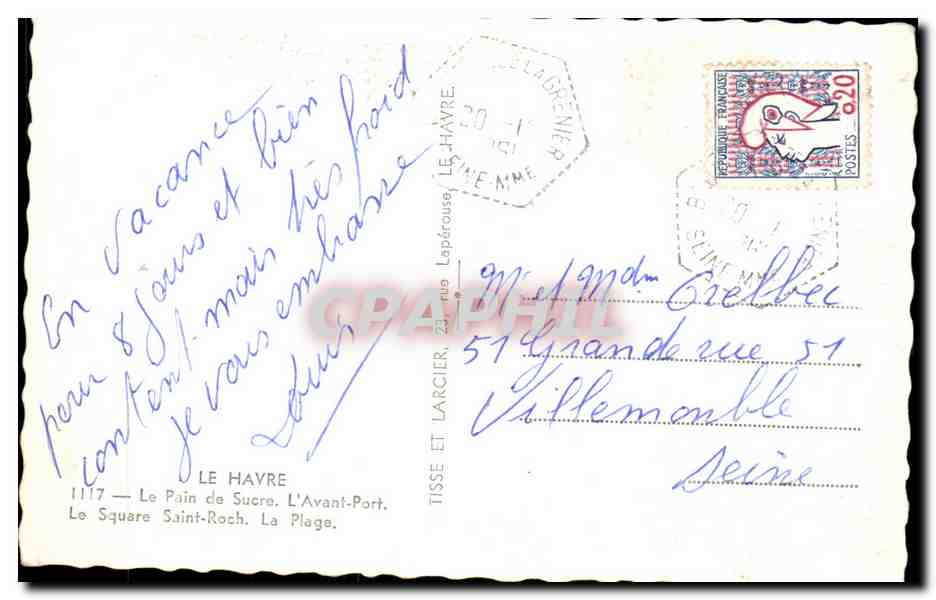 En vacance
pour 8 jours et bien
content mais très froid
je vous embrasse
Louis
LE HAVRE
1117 — Le Pain de Sucre. L'Avant-Port.
Le Square Saint-Roch. La Plage.
TISSE ET LARCIER, 23, rue Lapérouse, LE HAVRE.
LAGRENIER
20 -1
SEINE-MME
REPUBLIQUE FRANÇAISE
0,20
POSTES
SEINE-MME
Mr et Mdm Crelbec
51 Grande rue 51
Villemomble
Seine
CPAPHIL